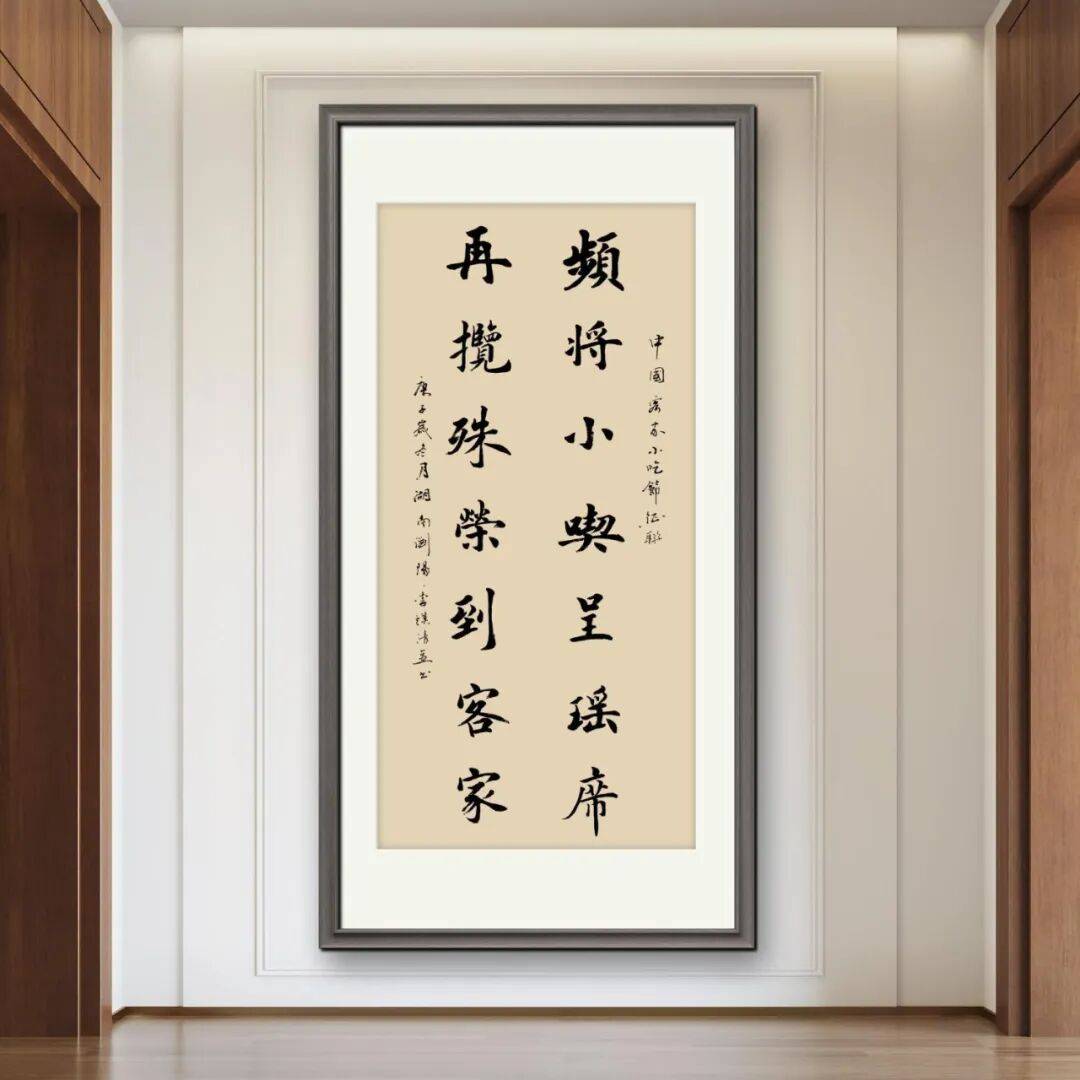 中國客家小吃節征聯
頻将小喫呈瑶席
再攬殊榮到客家
庚子歲冬月湖南瀏陽李祺清並书